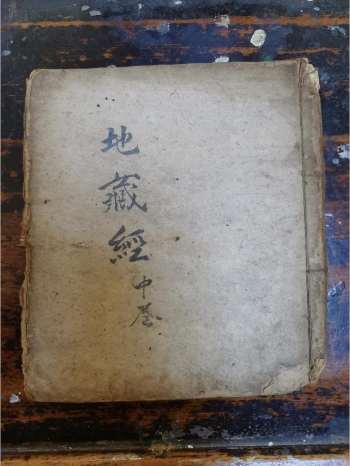 地藏經
中卷